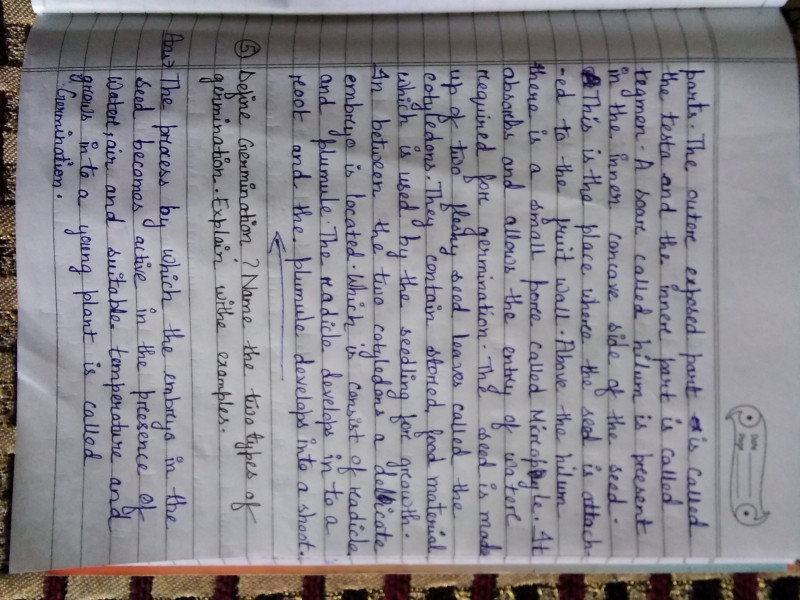 Date
Page
parts. The outer exposed part is called
the testa and the inner part is called
tegmen. A scar called hilum is present
in the inner concave side of the seed.
This is the place where the seed is attach
-ed to the fruit wall. Above the hilum
there is a small pore called Micropyle. It
absorbs and allows the entry of water
required for germination. The seed is made
up of two fleshy seed leaves called the
cotyledons. They contain stored food material
which is used by the seedling for growth.
In between the two cotyledons a delicate
embryo is located. Which is consist of radicle
and plumule. The radicle develops in to a
root and the plumule develops into a shoot.
⑤ Define Germination? Name the two types of
germination. Explain withe examples.
Ans→ The process by which the embryo in the
seed becomes active in the presence of
water, air and suitable temperature and
grows in to a young plant is called
Germination.